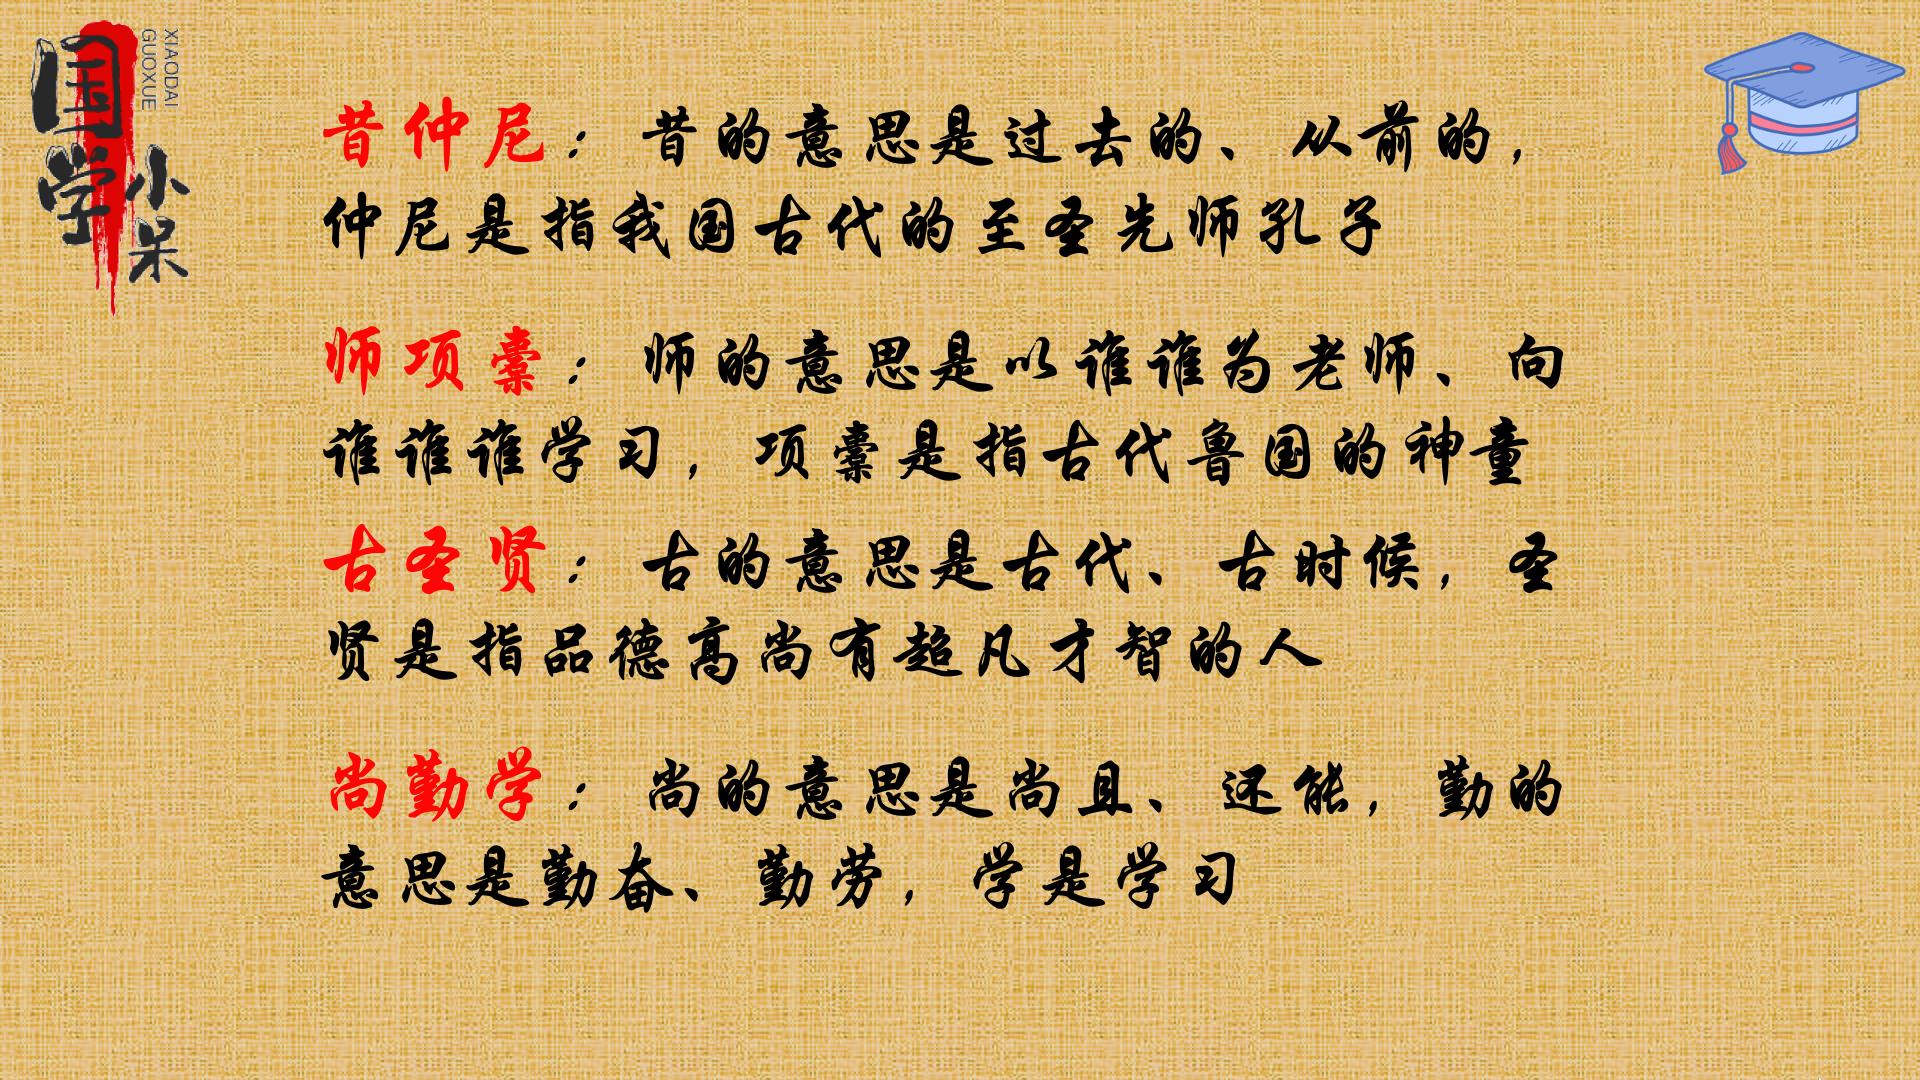 国学小呆
XIAODAI
GUOXUE
昔仲尼：昔的意思是过去的、从前的，
仲尼是指我国古代的至圣先师孔子
师项橐：师的意思是以谁谁为老师、向
谁谁谁学习，项橐是指古代鲁国的神童
古圣贤：古的意思是古代、古时候，圣
贤是指品德高尚有超凡才智的人
尚勤学：尚的意思是尚且、还能，勤的
意思是勤奋、勤劳，学是学习